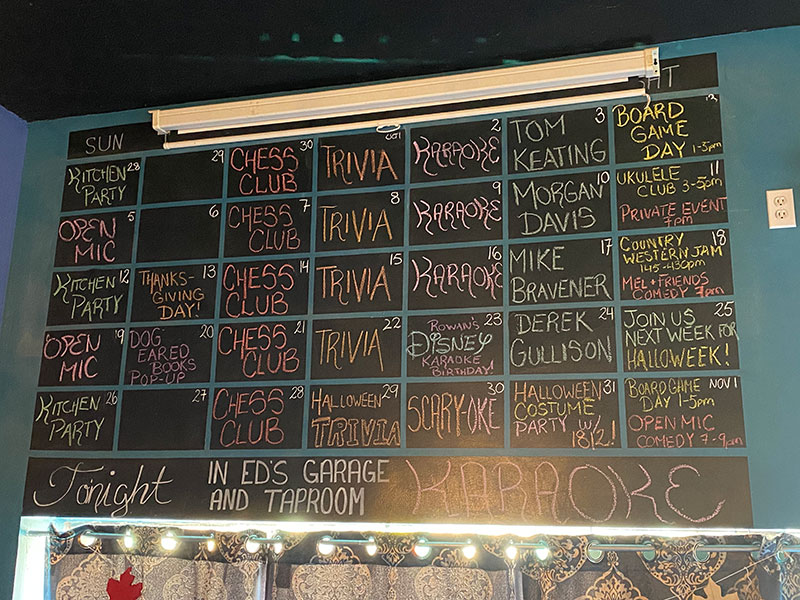 SUN
AT
KITCHEN PARTY 28
29
CHESS CLUB 30
TRIVIA OCT 1
KARAOKE 2
TOM KEATING 3
BOARD GAME DAY 1-5pm
OPEN MIC 5
6
CHESS CLUB 7
TRIVIA 8
KARAOKE 9
MORGAN DAVIS 10
UKULELE CLUB 3-5pm 11
PRIVATE EVENT 7pm
KITCHEN PARTY 12
THANKS-GIVING DAY! 13
CHESS CLUB 14
TRIVIA 15
KARAOKE 16
MIKE BRAVENER 17
COUNTRY WESTERN JAM 18
145-430pm
MEL + FRIENDS COMEDY 7pm
OPEN MIC 19
DOG EARED BOOKS POP-UP 20
CHESS CLUB 21
TRIVIA 22
ROWAN'S DISNEY KARAOKE BIRTHDAY! 23
DEREK GULLISON 24
JOIN US NEXT WEEK FOR HALLOWEEK! 25
KITCHEN PARTY 26
27
CHESS CLUB 28
HALLOWEEN TRIVIA 29
SCARY-OKE 30
HALLOWEEN COSTUME PARTY W/ 1812! 31
BOARD GAME DAY 1-5pm NOV 1
OPEN MIC COMEDY 7-9pm
Tonight IN ED'S GARAGE AND TAPROOM KARAOKE